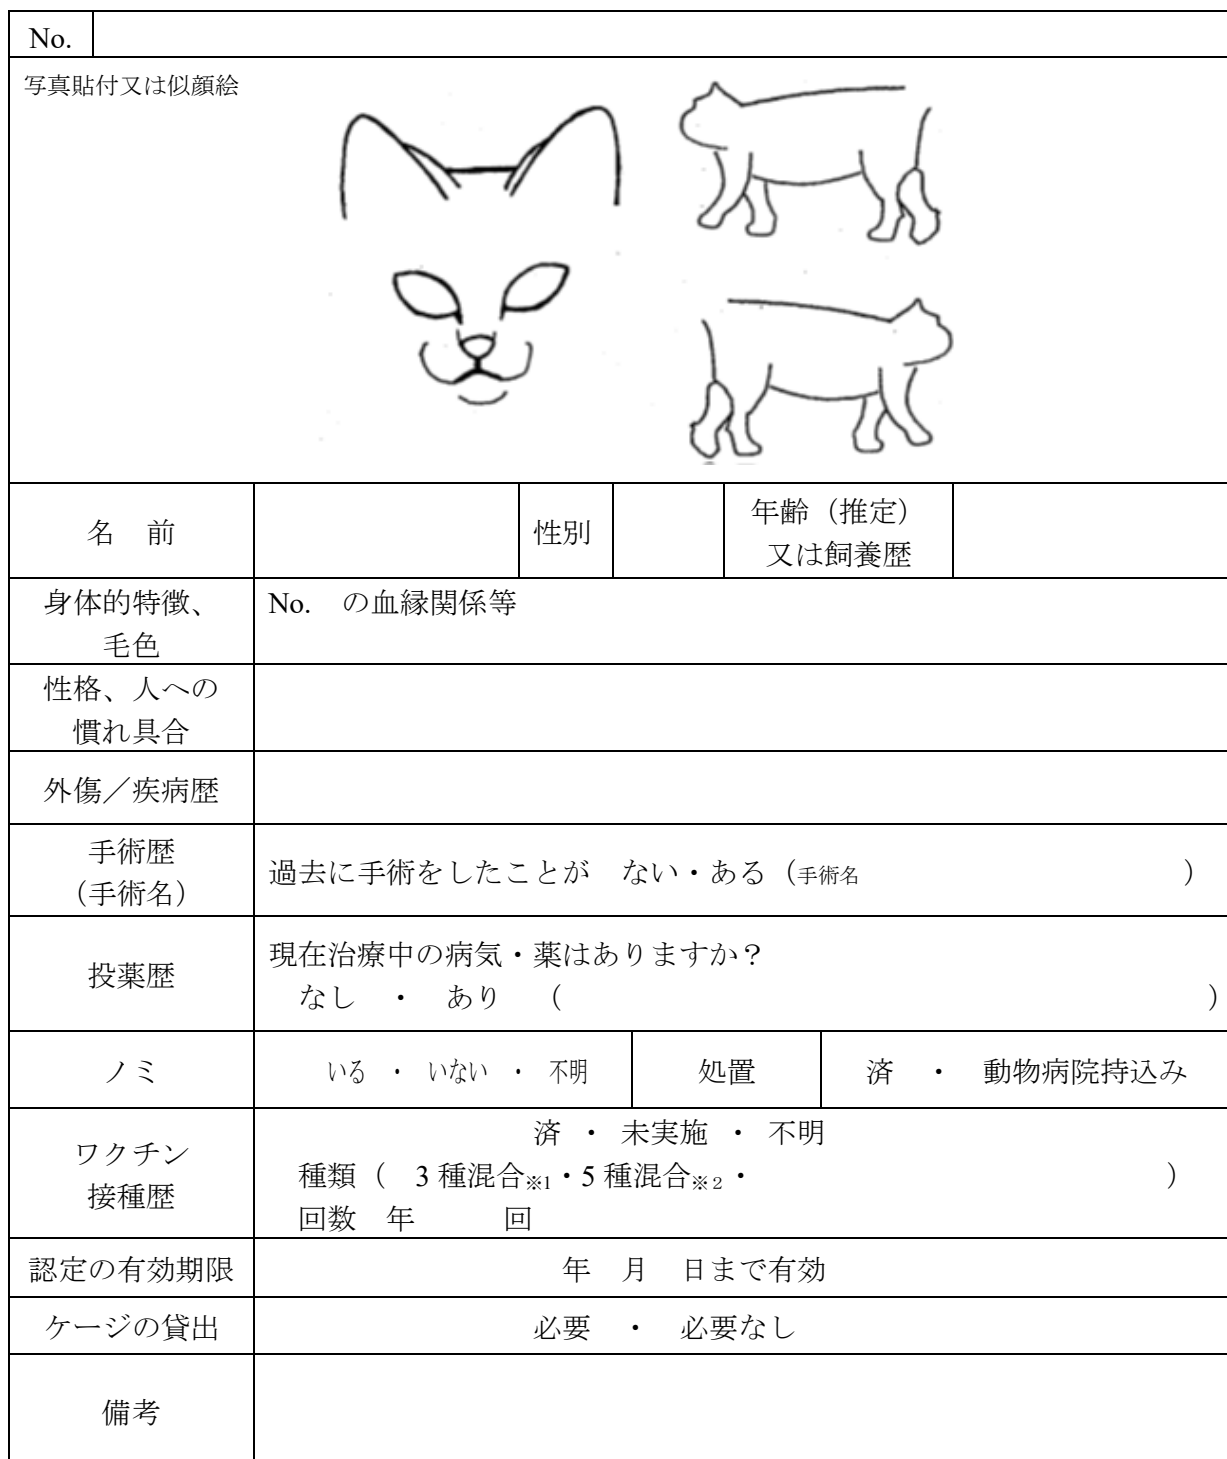 No.
写真貼付又は似顔絵
名　前
性別
年齢（推定）
又は飼養歴
身体的特徴、
毛色
No.　の血縁関係等
性格、人への
慣れ具合
外傷／疾病歴
手術歴
（手術名）
過去に手術をしたことが　ない・ある（手術名　　　　　　　　　　　）
投薬歴
現在治療中の病気・薬はありますか？
なし　・　あり　（　　　　　　　　　　　　　　　　　　　　　　）
ノミ
いる　・　いない　・　不明
処置
済　・　動物病院持込み
ワクチン
接種歴
済　・　未実施　・　不明
種類（　3種混合※1・5種混合※2・　　　　　　　　　　　　　　）
回数　年　　　回
認定の有効期限
年　月　日まで有効
ケージの貸出
必要　・　必要なし
備考